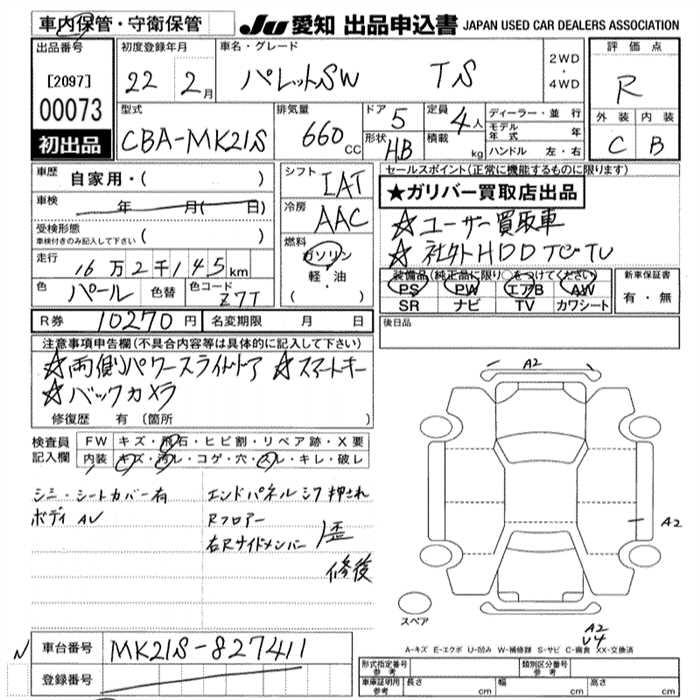 車内保管・守衛保管
JU 愛知 出品申込書 JAPAN USED CAR DEALERS ASSOCIATION
出品番号
[2097]
00073
初出品
初度登録年月
22 2月
車名・グレード
パレットSW TS
2WD・4WD
評価点
R
外装 内装
C B
型式
CBA-MK21S
排気量
660cc
ドア 5
形状 HB
定員 4人
積載 kg
ディーラー・並行
モデル年式 年
ハンドル 左・右
車歴 自家用・( )
車検 年 月( 日)
受検形態
車検付きのみ記入して下さい ( )
走行 16万2千145km
色 パール 色替 色コード Z7T
シフト IAT
冷房 AAC
燃料
ガソリン
軽・油
( )
セールスポイント(正常に機能するものに限ります)
★ガリバー買取店出品
☆ユーザー買取車
☆社外HDDナビTV
装備品(純正品に限り○をつけてください)
PS PW エアB AW
SR ナビ TV カワシート
新車保証書
有・無
R券 10270円
名変期限 月 日
後日品
注意事項申告欄(不具合内容等は具体的に記入して下さい)
☆両側パワースライドドア ☆スマートキー
☆バックカメラ
修復歴 有(箇所 )
検査員記入欄
FW キズ・飛石・ヒビ割・リペア跡・X要
内装 キズ・汚レ・コゲ・穴・スレ・キレ・破レ
シミ・シートカバー有
ボディ AV
エンドパネルシワ押され
Rフロアー
右Rサイドメンバー 歪
修復
A2
A2
A2
U4
スペア
A-キズ E-エクボ U-凹み W-補修跡 S-サビ C-腐食 XX-交換済
N
車台番号 MK21S-827411
登録番号
形式指定番号
参考
類別区分番号
参考
車庫証明用
参考
長さ cm 幅 cm 高さ cm